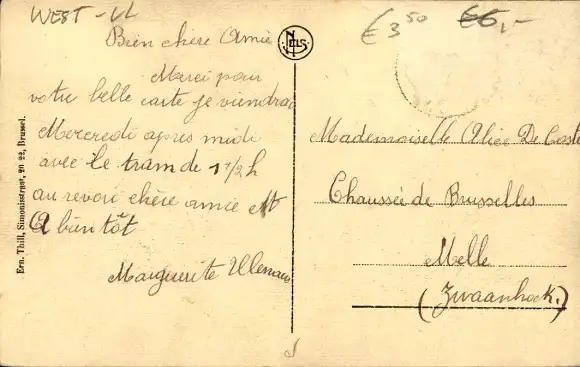 WEST-VL
€ 3,50 €6,-
Bien chère Amie
Merci pour
votre belle carte je viendrai
Mercredi après midi
avec le tram de 1 1/2 h
au revoir chère amie et
A bientôt
Marguerite
NELS
Mademoiselle Alice De Coste
Chaussée de Brusselles
Melle
(Zwaanhoek.)
Ern. Thill, Simonisstraat, 20 22, Brussel.